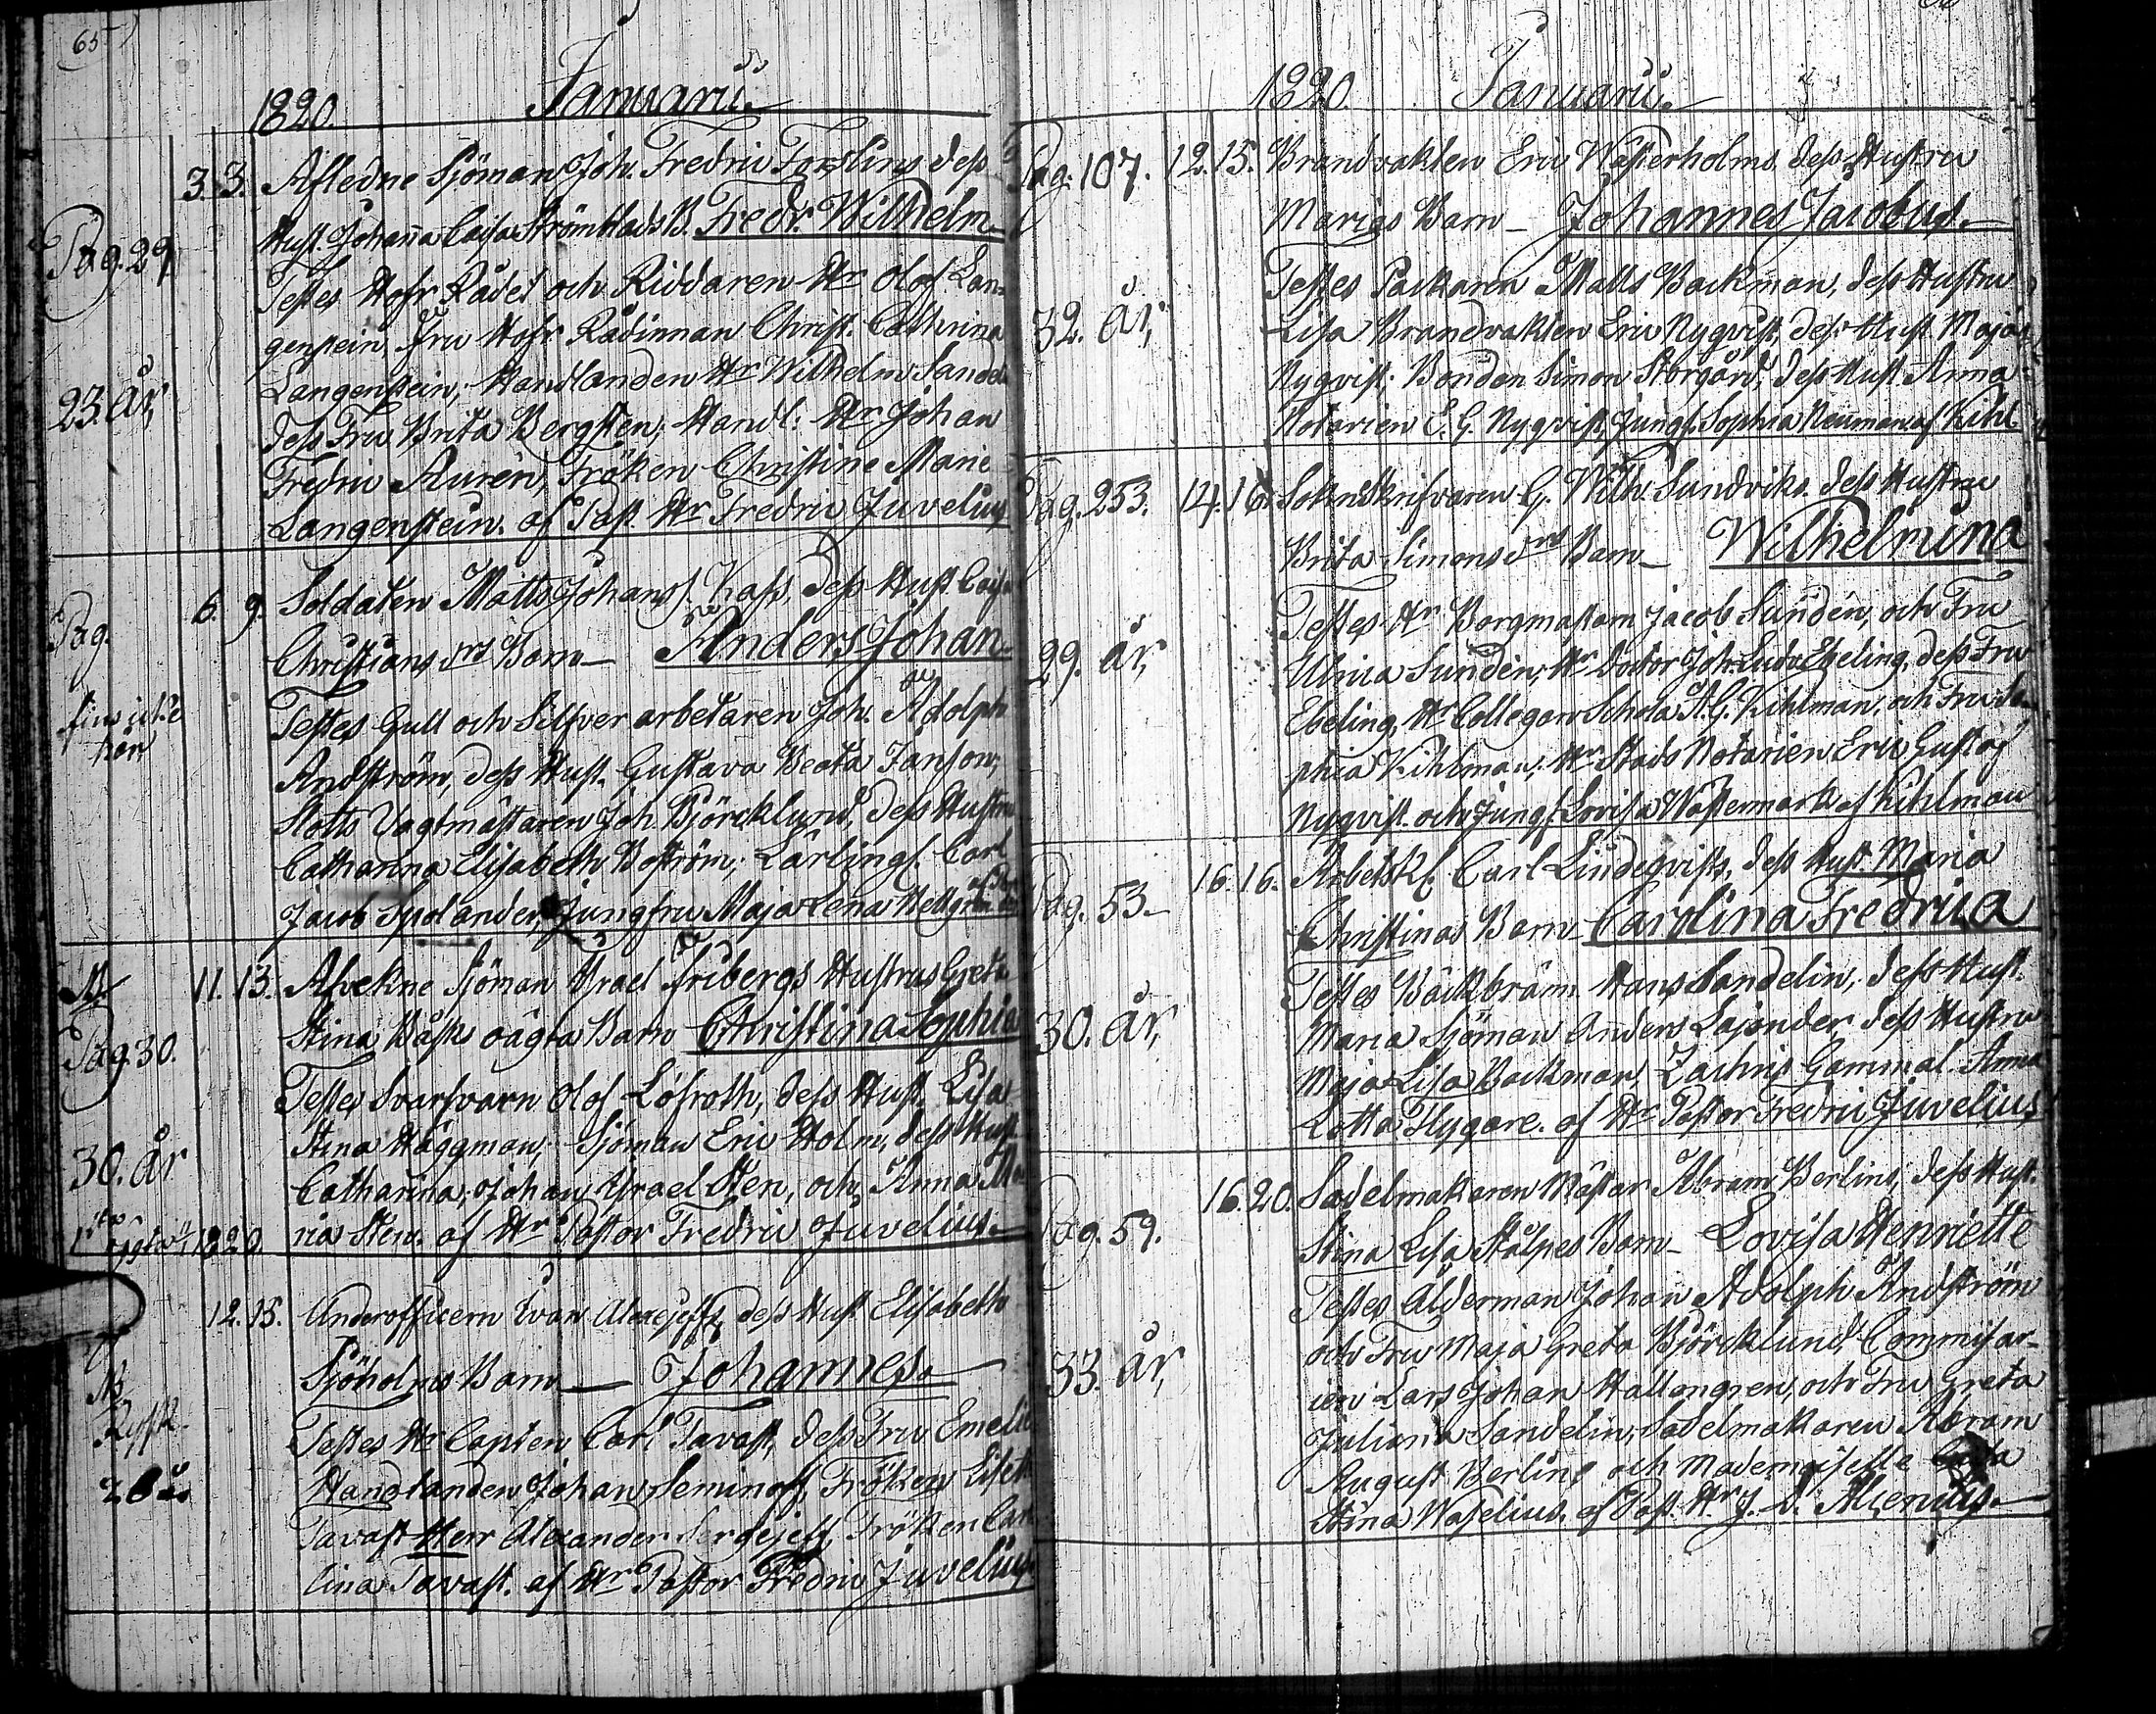 65
1820. Januarii.
3. 3. Afledne Sjöman Joh. Fredric Forslins dess
Pag. 29. Hust. Johanna Caisa Strömblads B. Fredr. Wilhelm
Testes Hofr Rådet och Riddaren Hr Olof Lan-
genstein, Fru Hofr. Rådinnan Christ. Cathrina
23. år, Langenstein, Handlanden Hr Wilhelm Sandel
dess Fru Brita Bergsten; Handl: Hr Johan
Fredric Auren, Fröken Christine Marie
Langenstein. af Past. Hr Fredric Juvelius
Pag. 6. 9. Soldaten Matts Johanss. Kass, dess Hust. Caisa
Christiansdrs Barn – Anders Johan
fins icke Testes Gull och Silfver arbetaren Joh. Adolph
här Andström, dess Hust. Gustava Beata Janson;
Slotts Vagtmästaren Joh. Björcklund, dess Hustru
Catharina Elisabeth Boström; Lärlingf. Carl
Jacob Spolander, Jungfru Maja Lena
11. 13. Afvekne Sjöman Israel Fribergs Hustrus Greta
Pag. 30. Stina Bäsks oägta Barn Christina Sophia
Testes Svarfvarn Olof Löfroth, dess Hust. Lisa
Stina Häggman; Sjöman Eric Holm, dess Hust.
30. år Catharina; Johan Israel Sten, och Anna Ma
1820. ria Sten. af Hr Pastor Fredric Juvelius.
12. 15. Underofficern Ivan Alexejeffs, dess Hust Elisabeth
Sjöholms Barn – Johannes.
Rysk. Testes Hr Capten Carl Tavast, dess Fru Emelie
Handlanden Johan Seminoff, Fröken Lisette
Tavast Herr Alexander Sergejeff, Fröken Caro
lina Tavast. af Hr Pastor Fredric Juvelius
1820. Januarii.
Pag. 107. 12. 15. Brandvakten Eric Wästerholms, dess Hustru
Marias Barn – Johannes Jacobus.
Testes Packaren Matts Backman, dess Hustru
32. år, Lisa Brandvakten Eric Nyqvist, dess Hust. Maja
Nyqvist; Bonden Simon Storgård, dess Hust. Anna
Notarien E. G. Nyqvist, Jungf. Sophia Neuman af Kihl.
Pag. 253. 14. 16. Soknskrifvaren G. Wilh. Sundviks. dess Hustru
Brita Simonsdrs Barn – Wilhelmina
Testes Hr Borgmästarn Jacob Sunden, och Fru
29. år, Ulrica Sunden, Hr Doctor Joh. Ludv. Ebeling, dess Fru
Ebeling, Hr Collegan Schola A. G. Kihlman, och Fru So
phia Kihlman; Hr Stads Notarien Eric Gustaf
Nyqvist. och Jungf. Lovisa Wästermark af Kihlman
Pag. 53. 16. 16. Arbetsk. Carl Lindeqvists, dess Hust Maria
Christinas Barn Carolina Fredrica
Testes Bäckbräm Hans Sandelin, dess Hust.
30. år, Maria Sjöman Anders Lajander dess Hustru
Maja Lisa Backman, Zachris Gammal. Anna
Lotta Flygare. af Hr Pastor Fredric Juvelius
16. 20. Sadelmakaren Mästar Abram Berlins, dess Hust.
Pag. 59. Stina Lisa Stålpes Barn – Lovisa Henriette
Testes Ålderman Johan Adolph Andström
och Fru Maja Greta Björcklund, Commisar-
33. år, ien Lars Johan Hallongren, och Fru Greta
Juliana Sandelin, Sadelmakaren Abram
August Berlins och Mademoiselle
Stina Waselius. af Past. Hr J. D. Alcenius.